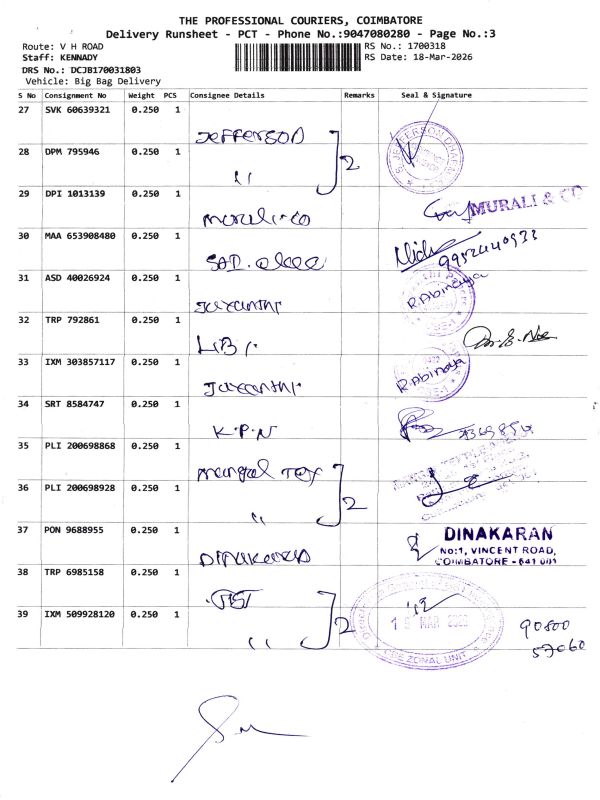 THE PROFESSIONAL COURIERS, COIMBATORE
Delivery Runsheet - PCT - Phone No.:9047080280 - Page No.:3
Route: V H ROAD
RS No.: 1700318
Staff: KENNADY
RS Date: 18-Mar-2026
DRS No.: DCJB170031803
Vehicle: Big Bag Delivery
S No Consignment No Weight PCS Consignee Details Remarks Seal & Signature
27 SVK 60639321 0.250 1 Jefferson
28 DPM 795946 0.250 1 " 2
29 DPI 1013139 0.250 1 MURALI & CO
30 MAA 653908480 0.250 1 9952440933
31 ASD 40026924 0.250 1 Jayanthi R.Abinaya
32 TRP 792861 0.250 1
33 IXM 303857117 0.250 1 Jayanthi R.Abinaya
34 SRT 8584747 0.250 1 K.P.N
35 PLI 200698868 0.250 1 Mangal Tex
36 PLI 200698928 0.250 1 " 2
37 PON 9688955 0.250 1 Dinakaran DINAKARAN
No:1, VINCENT ROAD,
COIMBATORE - 641 001
38 TRP 6985158 0.250 1
39 IXM 509928120 0.250 1 " 2 MAR
CBE ZONAL UNIT
90800
57060